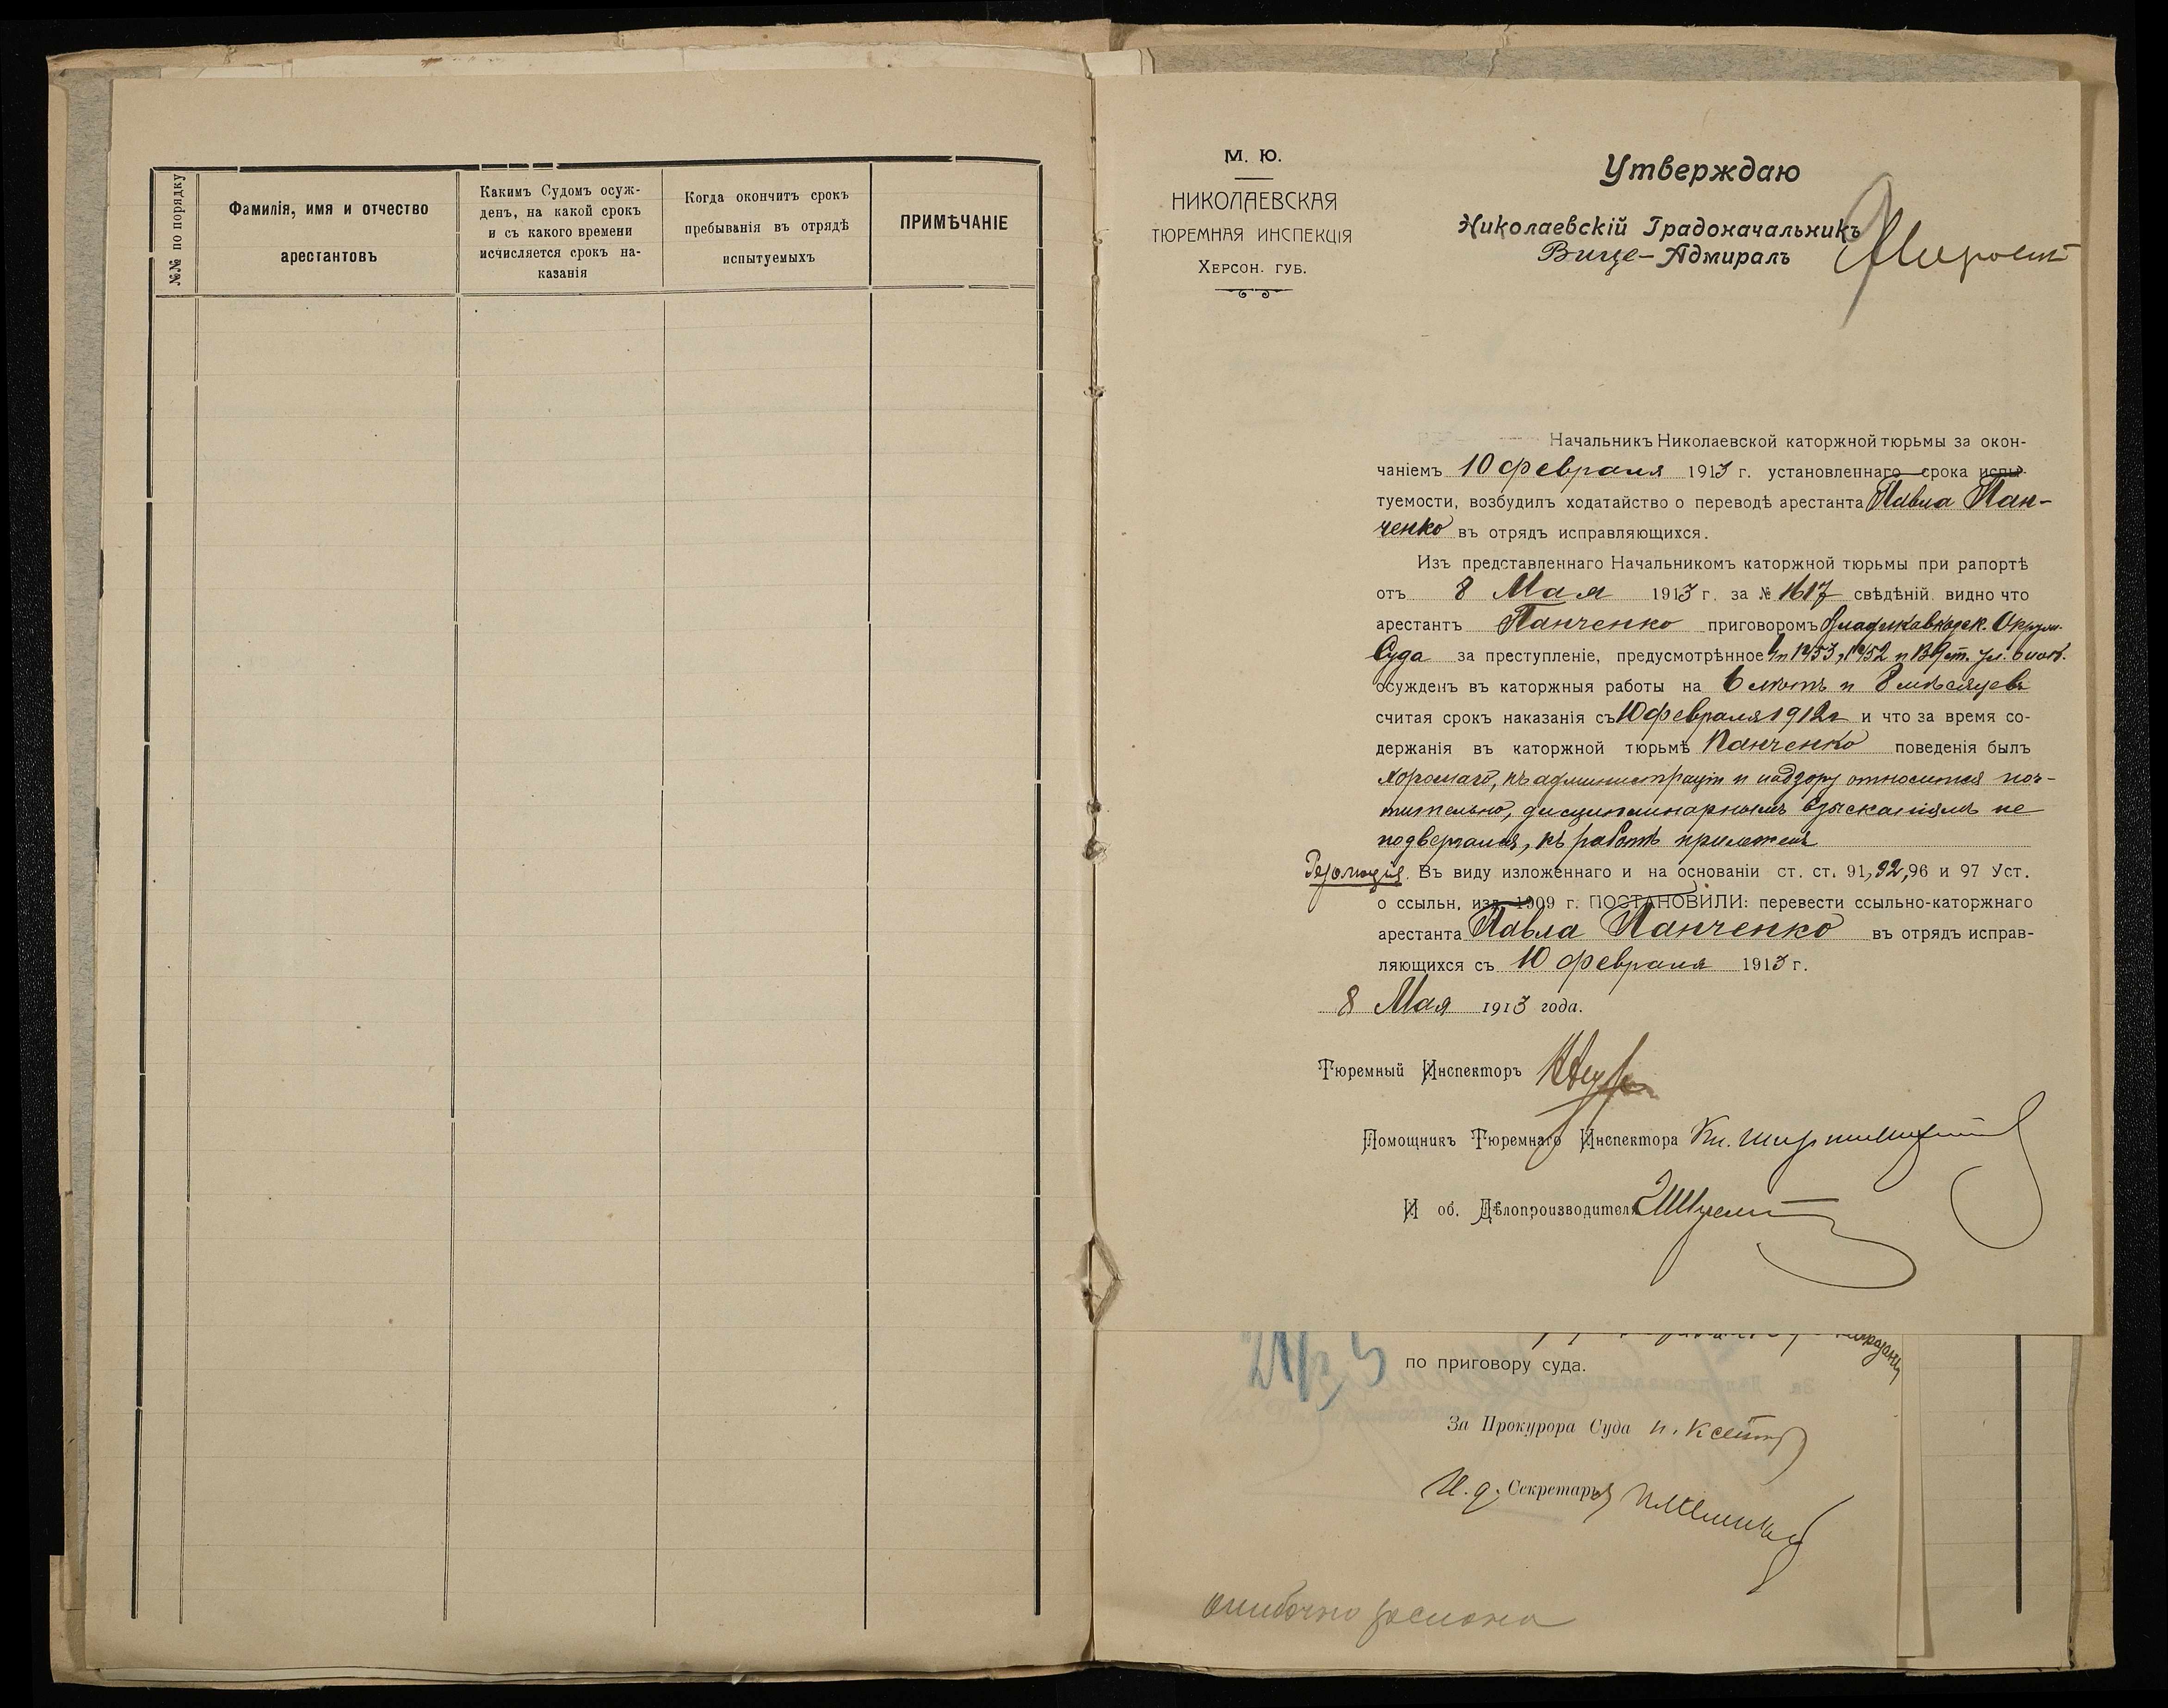 №№ по порядку
Фамилія, имя и отчество
арестантовъ
Какимъ Судомъ осуж-
денъ, на какой срокъ
и съ какого времени
исчисляется срокъ на-
казанія
Когда окончитъ срокъ
пребыванія въ отрядѣ
испытуемыхъ
ПРИМѢЧАНІЕ
М. Ю.
НИКОЛАЕВСКАЯ
ТЮРЕМНАЯ ИНСПЕКЦІЯ
ХЕРСОН. ГУБ.
Утверждаю
Николаевскій Градоначальникъ
Вице-Адмиралъ
Начальникъ Николаевской каторжной тюрьмы за окон-
чаніемъ 10 февраля 1913 г. установленнаго срока испы-
туемости, возбудилъ ходатайство о переводѣ арестанта Павла Пан-
ченко въ отрядъ исправляющихся.
Изъ представленнаго Начальникомъ каторжной тюрьмы при рапортѣ
отъ 8 Мая 1913 г. за № 1617 свѣдѣній видно что
арестантъ Панченко приговоромъ Владикавказск. Окружн.
Суда за преступленіе, предусмотрѣнное 1453, 1452 и ст. ул. о нак.
осужденъ въ каторжныя работы на 6 лѣтъ и 8 мѣсяцевъ
считая срокъ наказанія съ 10 февраля 1912 г и что за время со-
держанія въ каторжной тюрьмѣ Панченко поведенія былъ
хорошаго, къ администраціи и надзору относится поч-
тительно, дисциплинарнымъ взысканіямъ не
подвергался, къ работѣ прилеженъ
Резолюція. Въ виду изложеннаго и на основаніи ст. ст. 91, 92, 96 и 97 Уст.
о ссыльн. изд. 1909 г. ПОСТАНОВИЛИ: перевести ссыльно-каторжнаго
арестанта Павла Панченко въ отрядъ исправ-
ляющихся съ 10 февраля 1913 г.
8 Мая 1913 года.
Тюремный Инспекторъ
Помощникъ Тюремнаго Инспектора Кн.
И об. Дѣлопроизводителя
по приговору суда.
За Прокурора Суда
И. д. Секретаря
ошибочно